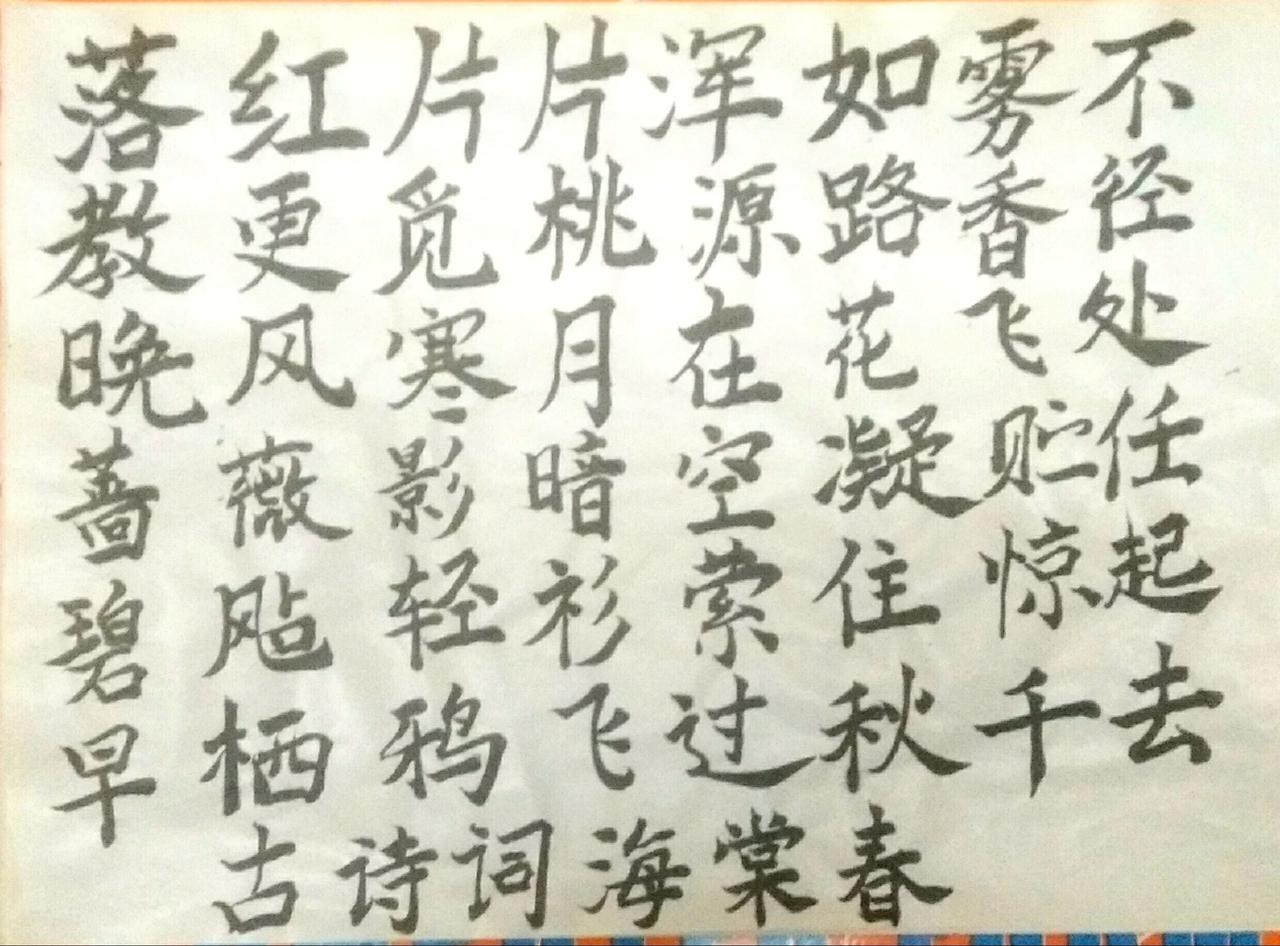 落红片片浑如雾不
教更觅桃源路香径
晚风寒月在花飞处
蔷薇影暗空凝贮任
碧飐轻衫萦住惊起
早栖鸦飞过秋千去
古诗词海棠春